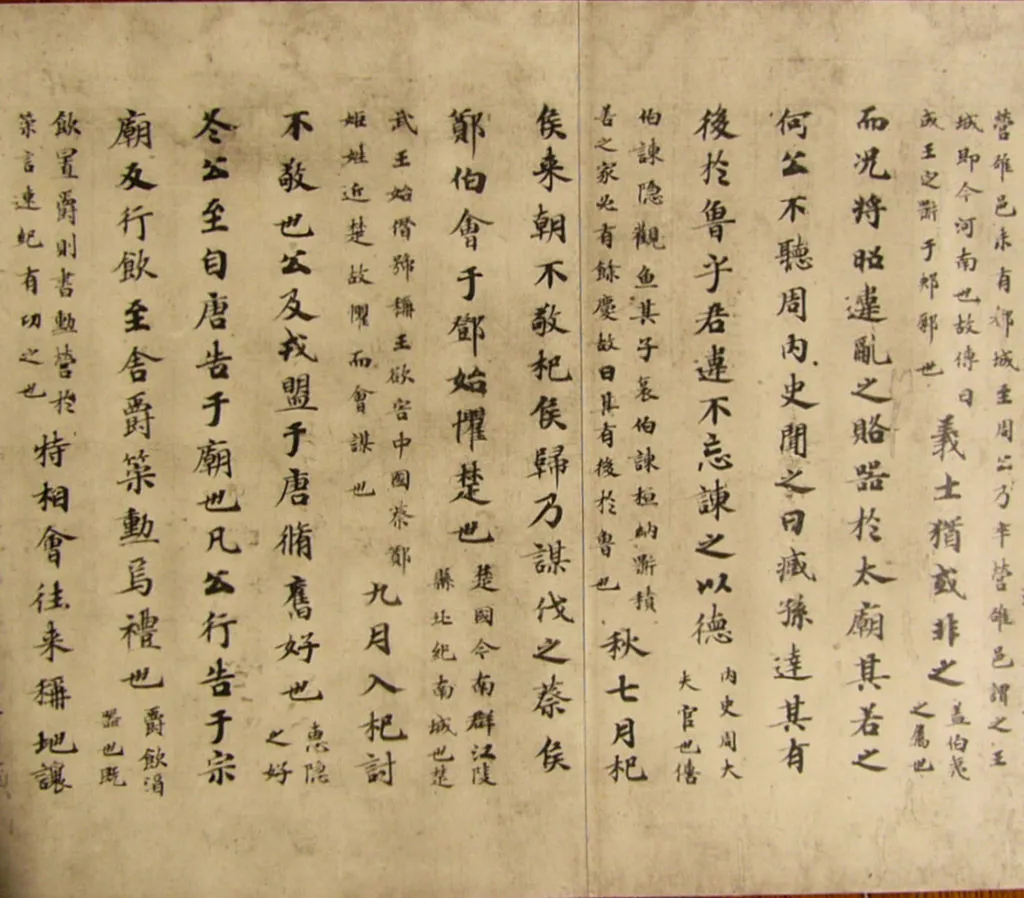 營雒邑未有都城至周公乃卒營雒邑謂之王
城即今河南也故傳曰
成王定鼎于郟鄏也
義士猶或非之
蓋伯夷
之屬也
而況將昭違亂之賂器於太廟其若之
何公不聽周内史聞之曰臧孫達其有
後於魯乎君違不忘諫之以德
内史周大
夫官也僖
伯諫隱觀魚其子哀伯諫桓納鼎積
善之家必有餘慶故曰其有後於魯也
秋七月杞
侯来朝不敬杞侯歸乃謀伐之蔡侯
鄭伯會于鄧始懼楚也
楚國今南群江陵
縣北紀南城也楚
武王始僭號稱王欲害中國蔡鄭
姬姓近楚故懼而會謀也
九月入杞討
不敬也公及戎盟于唐脩舊好也
惠隱
之好
冬公至自唐告于廟也凡公行告于宗
廟反行飲至舍爵策勳焉禮也
爵飲酒
器也既
飲置爵則書勳勞於
策言速紀有功之也
特相會往来稱地讓